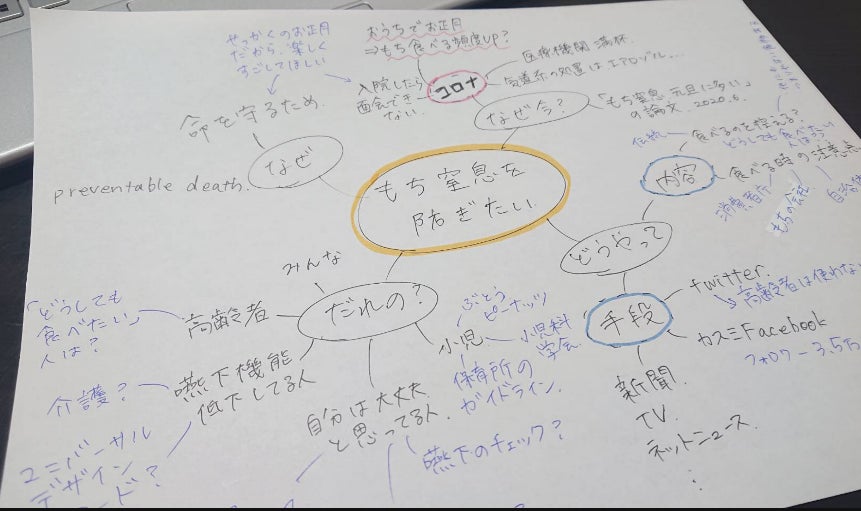 せっかくのお正月
だから、楽しく
すごしてほしい
おうちでお正月
⇒もち食べる頻度UP?
入院したら
面会でき
ない。
コロナ
医療機関 満杯.
気道系の処置はエアロゾル...
なぜ今?
「もち窒息 元旦に多い」
の論文. 2020.6.
命を守るため.
なぜ
preventable death.
もち窒息を
防ぎたい.
伝統
食べるのを控える?
どうしても食べたい
人は?
内容
食べる時の注意点
消費者庁
もちの会社
どうやって
手段
twitter.
高齢者は使わない
カスミFacebook
フォロワー3.5万
新聞.
TV.
ネットニュース.
⋮
みんな
だれの?
高齢者
「どうしても
食べたい」
人は?
嚥下機能
低下してる人
介護?
ユニバーサル
デザイン
自分は大丈夫
と思ってる人.
小児
ぶどう
ピーナッツ
小児科
学会.
保育所の
ガイドライン.
嚥下のチェック?